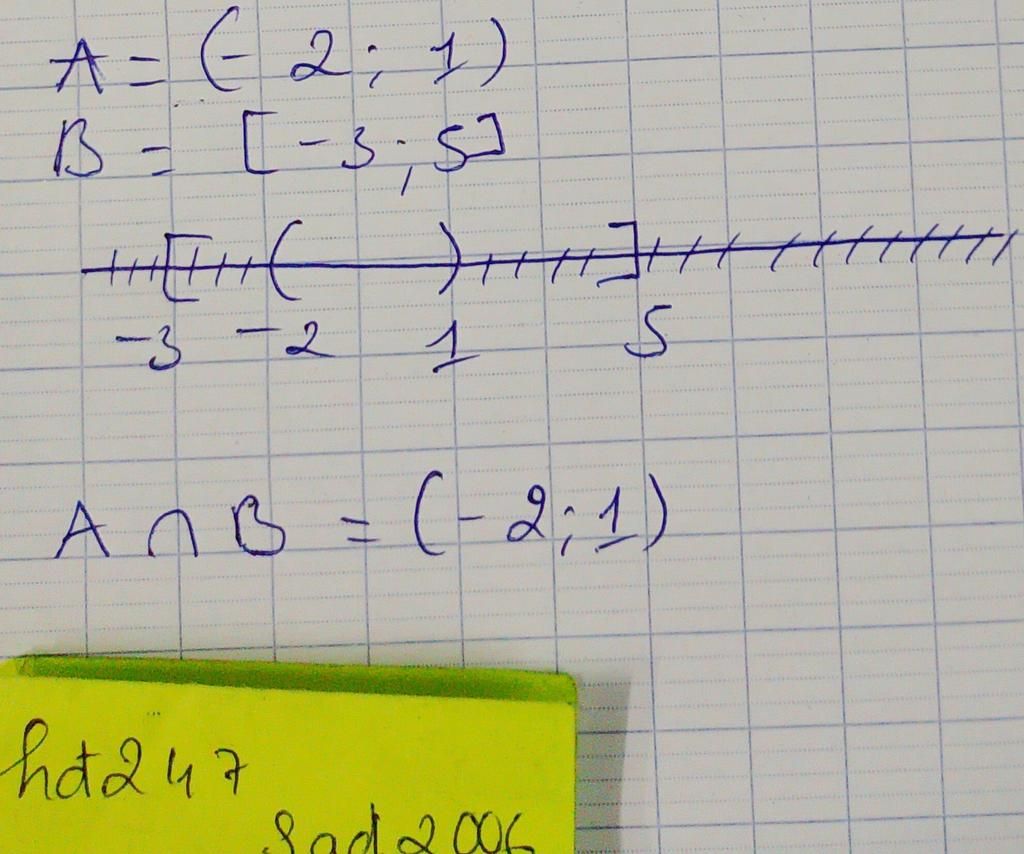 A = (- 2 ; 1)
B = [ -3 ; 5]
-3 -2 1 5
A ∩ B = (- 2 ; 1)
hđ247
Sad2006